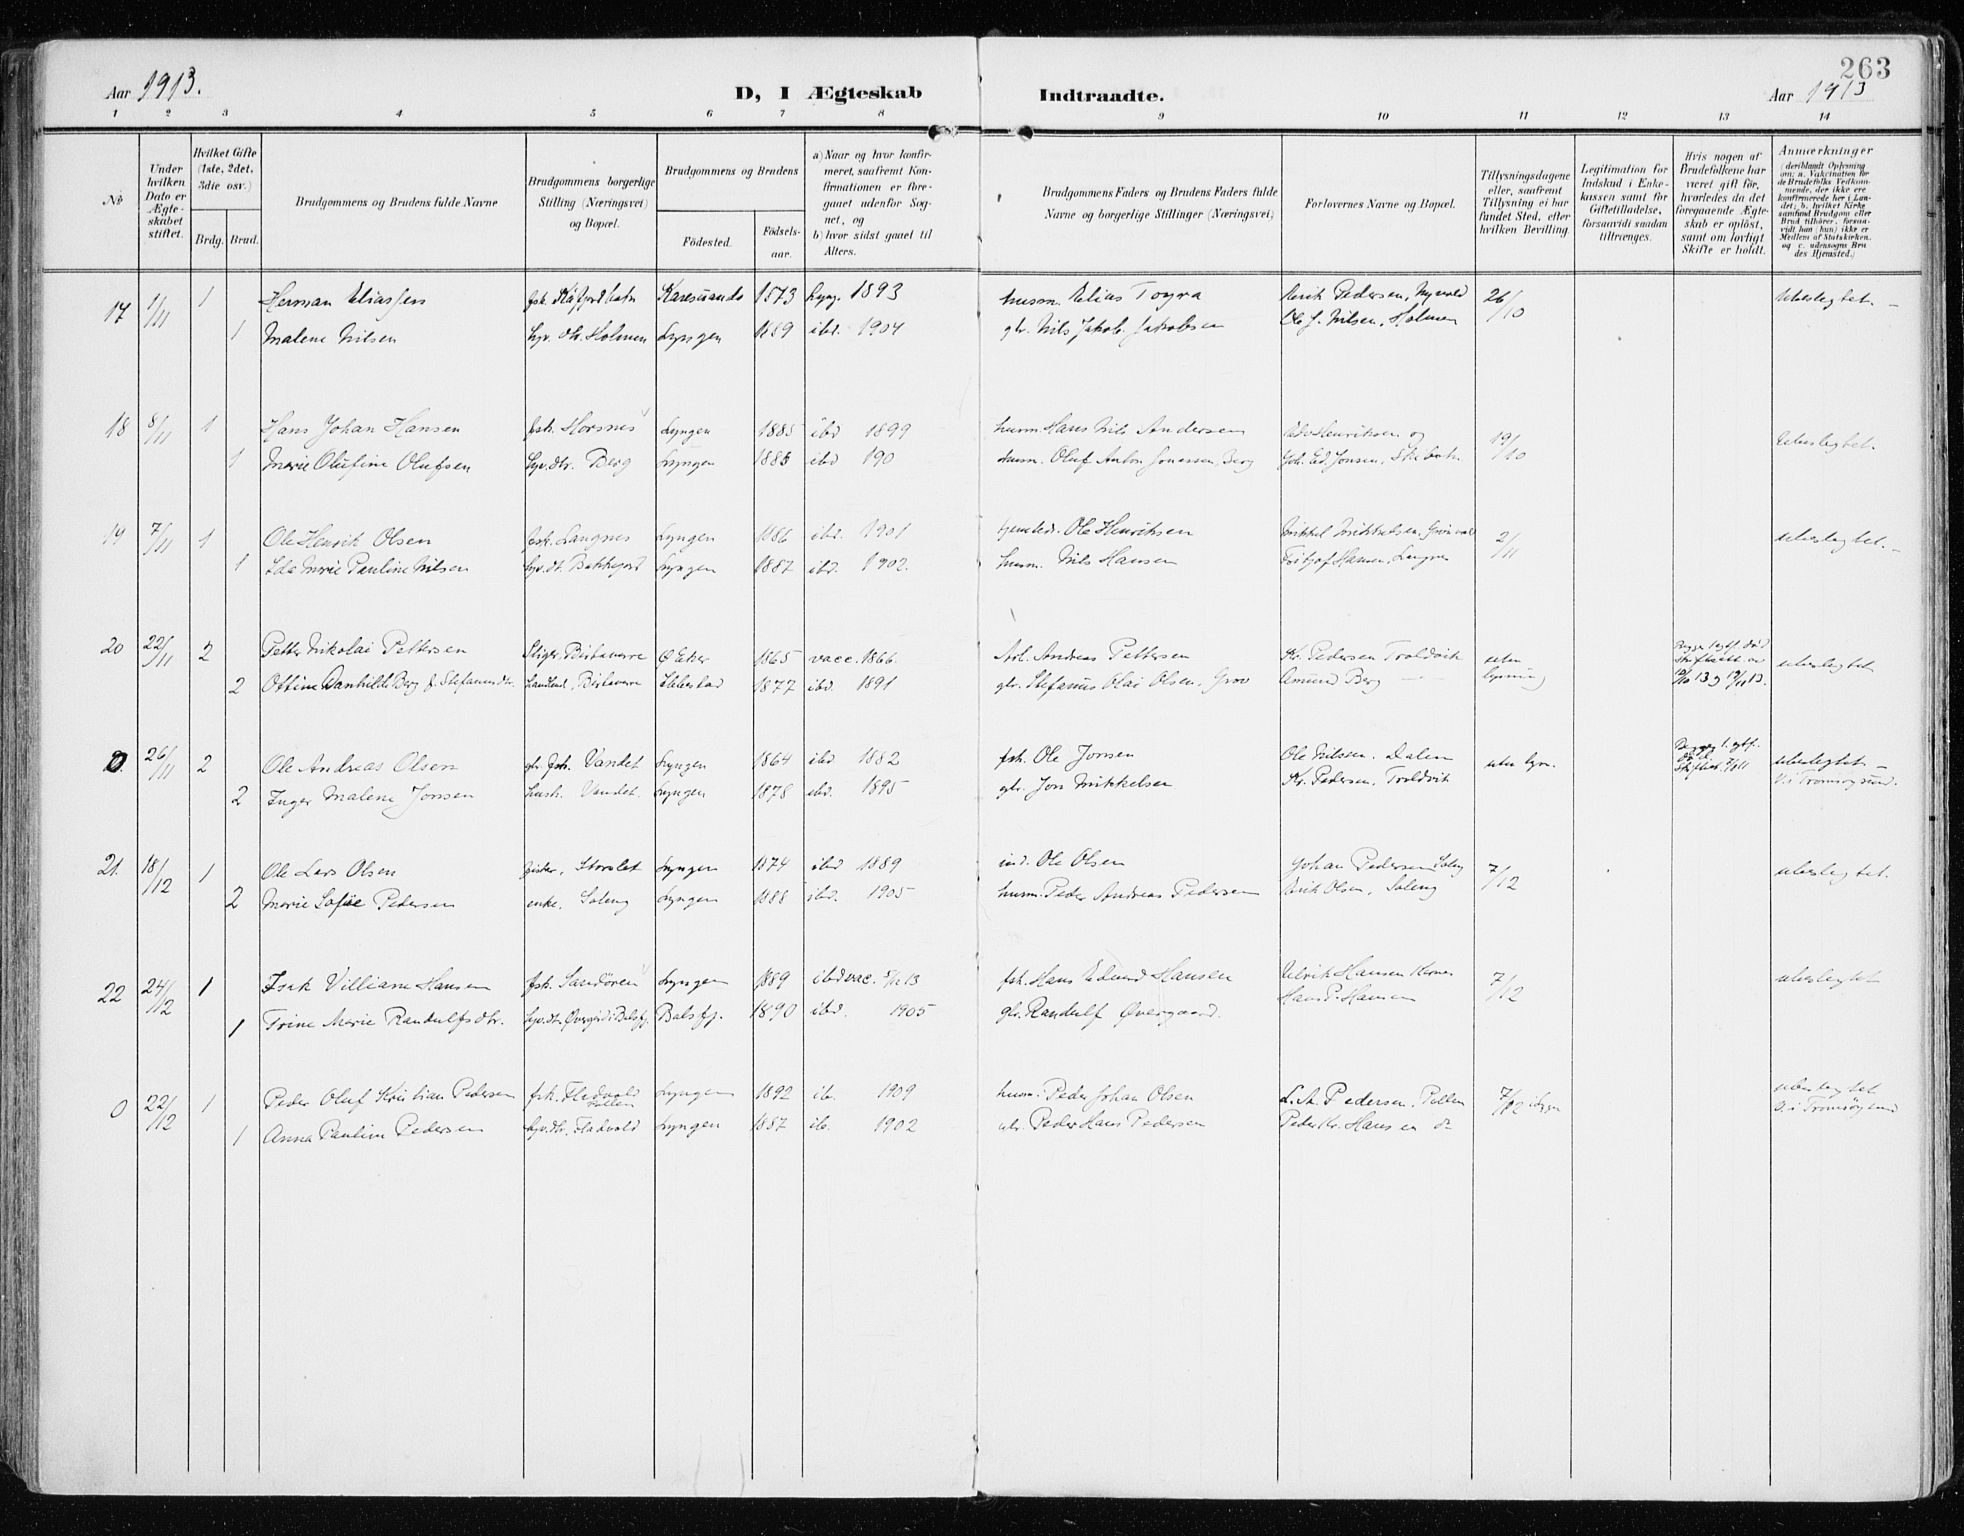 263
Aar 1913.
D, I Ægteskab Indtraadte.
Aar 1913
1 2 3 4 5 6 7 8 9 10 11 12 13 14
No
Under hvilken Dato er Ægteskabet stiftet.
Hvilket Gifte (1ste, 2det, 3die osv.)
Brdg. Brud.
Brudgommens og Brudens fulde Navne
Brudgommens borgerlige Stilling (Næringsvei) og Bopæl.
Brudgommens og Brudens
Födested.
Födselsaar.
a) Naar og hvor konfirmeret, saafremt Konfirmationen er foregaaet udenför Sognet, og
b) hvor sidst gaaet til Alters.
Brudgommens Faders og Brudens Faders fulde Navne og borgerlige Stillinger (Næringsvei)
Forlovernes Navne og Bopæl.
Tillysningsdagene eller, saafremt Tillysning ei har fundet Sted, efter hvilken Bevilling.
Legitimation for Indskud i Enkekassen samt for Giftetilladelse, forsaavidt saadan tiltrænges.
Hvis nogen af Brudefolkene har været gift för, hvorledes da det foregaaende Ægteskab er oplöst, samt om lovligt Skifte er holdt.
Anmærkninger (deriblandt Oplysning om: a. Vakcination for de Brudefolks Vedkommende, der ikke ere konfirmerede her i Landet; b. hvilket Kirkesamfund Brudgom eller Brud tilhörer, forsaavidt han (hun) ikke er Medlem af Statskirken, og c. udensogns Brudes Hjemsted.)
17 1/11 1 Herman Eliassen fsk. Kåfjordbotn Karesuando 1873 Lyng. 1893 husm. Elias Togra Erik Pedersen, Nyvold 26/10 Ubeslegtet.
1 Malene Nilsen Gv. dtr. Holmen Lyngen 1889 ibd. 1904 gbr. Nils Jakob Jakobsen Ole J. Nilsen, Holmen
18 8/11 1 Hans Johan Hansen fsk. Horsnes Lyngen 1885 ibd 1899 husm. Hans Nils Andersen Henriksen og 19/10 Ubeslegtet.
1 Marie Olufine Olufsen dtr. Berg Lyngen 1885 ibd 190 husm. Oluf Anton Jonassen, Berg Joh. Ed. Jonsen, Skibotn
19 7/11 1 Ole Henrik Olsen fsk. Langnes Lyngen 1886 ibd. 1901 Ole Henriksen Mikkel Mikkelsen, 2/11 ubeslegtet.
1 Ida Marie Pauline Nilsen dt. Bakkejord Lyngen 1887 ibd. 1902. husm. Nils Hansen Fritjof Hansen, Langnes
20 22/11 2 Petter Nikolai Pettersen Stiger, Birtavarre Ø Eker 1865 vacc. 1866. Arb. Andreas Pettersen Kr. Pedersen Troldvik uten lysning ubeslegtet
2 Ottine Danhilde Berg f. Stefanusdtr. Birtavarre Ibbestad 1877 ibd. 1891 gbr. Stefanus Olai Olsen, Grov Amund Berg
0. 26/11 2 Ole Andreas Olsen gbr. fsk. Vandet Lyngen 1864 ibd 1882 fsk. Ole Jonsen Ole Nilssen, Dalen uten lysn. ubeslegtet
2 Inger Malene Jonsen hush. Vandet. Lyngen 1878 ibd. 1895 gbr. Jon Mikkelsen Kr. Pedersen, Troldvik V. i Tromsøysund.
21. 18/12 1 Ole Lars Olsen fisker, Storslet Lyngen 1874 ibd 1889 ind. Ole Olsen Johan Pedersen Soleng 7/12 ubeslegtet.
2 Marie Sofie Pedersen enke, Soleng Lyngen 1888 ibd. 1905 husm. Peder Andreas Pedersen Erik Olsen, Soleng
22 24/12 1 Isak Villiam Hansen fsk. Sandören Lyngen 1889 ibd vac. 5/12 13 fsk. Hans Edvard Hansen Ulrik Hansen 7/12 ubeslegtet
1 Trine Marie Randulfsdtr. dtr. Øvergård i Balsfj. Balsfj. 1890 ibd. 1905 gbr. Randulf Øvergaard. Hans P. Hansen
0 22/12 1 Peder Oluf Kristian Pedersen fsk. Fladvold Lyngen 1892 ib. 1909 husm. Peder Johan Olsen L. A. Pedersen, Pollen 7/12 ubeslegtet
V. i Tromsøysund
1 Anna Pauline Pedersen dtr. Fladvold Lyngen 1887 ib. 1902 gbr. Peder Hans Pedersen Peder Kr. Hansen do